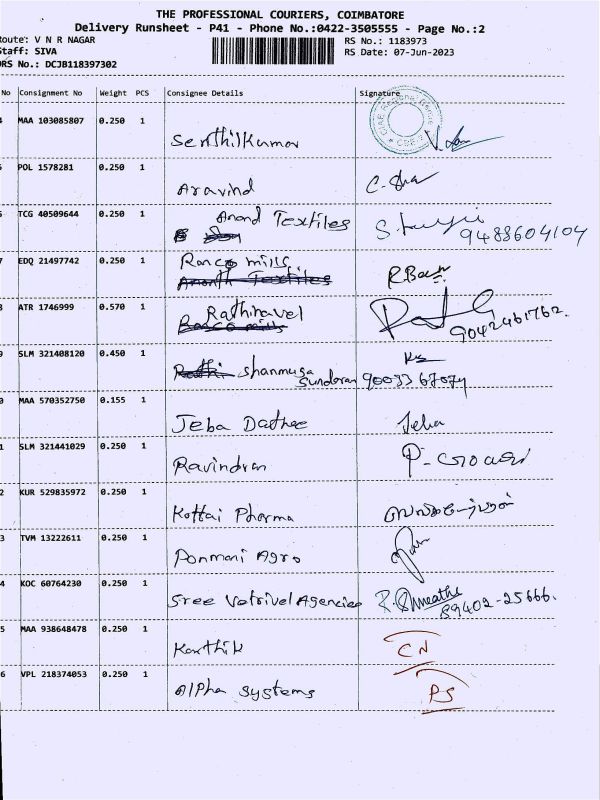 THE PROFESSIONAL COURIERS, COIMBATORE
Delivery Runsheet - P41 - Phone No.:0422-3505555 - Page No.:2
Route: V N R NAGAR
RS No.: 1183973
Staff: SIVA
RS Date: 07-Jun-2023
DRS No.: DCJB118397302
No Consignment No Weight PCS Consignee Details Signature
4 MAA 103085807 0.250 1
Senthilkumar
POL 1578281 0.250 1
Aravind C.
TCG 40509644 0.250 1 Anand Textiles
9488604104
7 EDQ 21497742 0.250 1 Ranco mills
Ananth Textiles
ATR 1746999 0.570 1 Rathinavel
Ranco mills 9042461762.
SLM 321408120 0.450 1
Rathi Shanmuga
Sundaran 90033 67074
0 MAA 570352750 0.155 1
Jeba Dathee Jeba
1 SLM 321441029 0.250 1
Ravindran P-
2 KUR 529835972 0.250 1
Kottai Pharma
3 TVM 13222611 0.250 1
Ponmani Agro
4 KOC 60764230 0.250 1
Sree Vetrivel Agencies R.
89402-25666.
5 MAA 938648478 0.250 1
Karthik CN
6 VPL 218374053 0.250 1
Alpha Systems PS